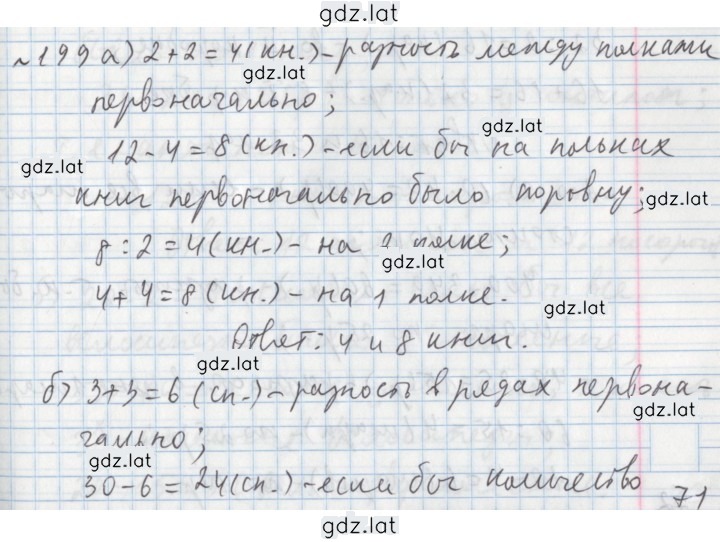 gdz.lat
~199 а) 2+2=4(кн.)-разность между полками
gdz.lat
первоначально;
gdz.lat
12-4=8(кн.)-если бы на полках
gdz.lat
книг первоначально было поровну;
gdz.lat
8:2=4(кн.)-на 2 полке;
gdz.lat
4+4=8(кн.)-на 1 полке.
Ответ: 4 и 8 книг.
gdz.lat
б) 3+3=6(сп.)-разность в рядах первона-
gdz.lat
чально;
gdz.lat
30-6=24(сп.)-если бы количество
gdz.lat
71
gdz.lat